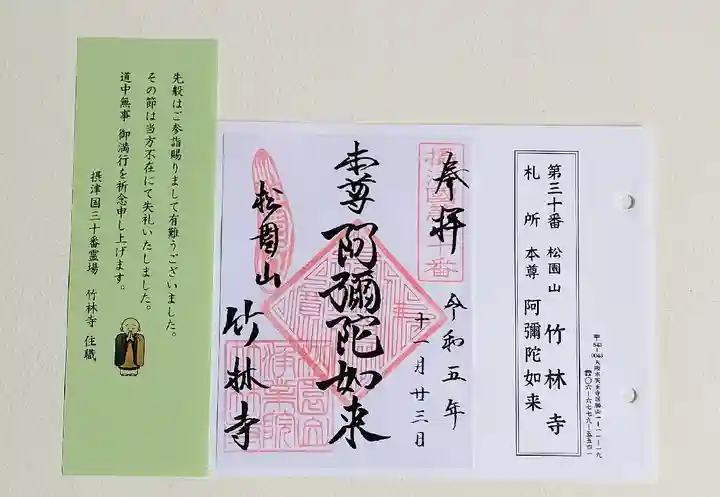 第三十番 松園山 竹林寺
札所 本尊 阿彌陀如来
奉拝
令和五年
十一月廿三日
本尊 阿彌陀如来
松園山
竹林寺
先般はご参詣賜りまして有難うございました。
その節は当方不在にて失礼いたしました。
道中無事 御満行を祈念申し上げます。
摂津国三十番霊場 竹林寺 住職